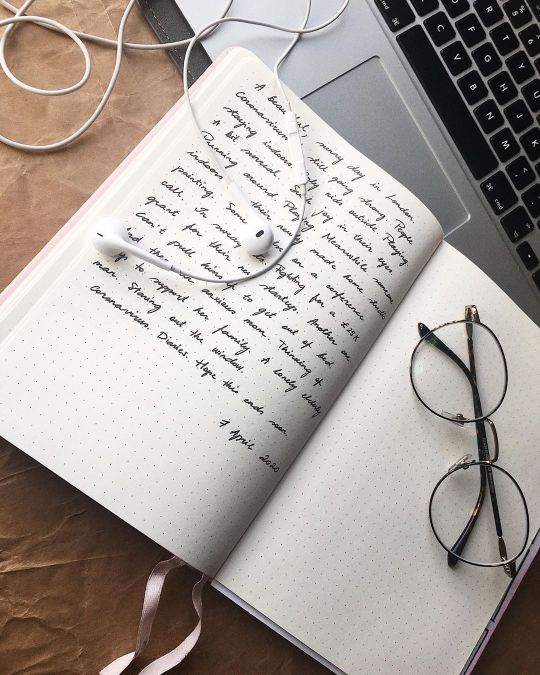 A sunny day in London.
Coronavirus still going strong. People
staying indoors. kids outside. Playing
A bit surreal. joy in their eyes.
Running around Playing. Meanwhile someone
indoors in their newly made home studio
painting. on a conference
call. In Fighting for a £25K
grant for their new startup. Another one
can't pull himself to get out of bed
and the anxious mom. Thinking of
to support her family. A lonely elderly
man. Staring out the window.
Coronavirus. Diaries. Hope this ends soon.
7 April 2020